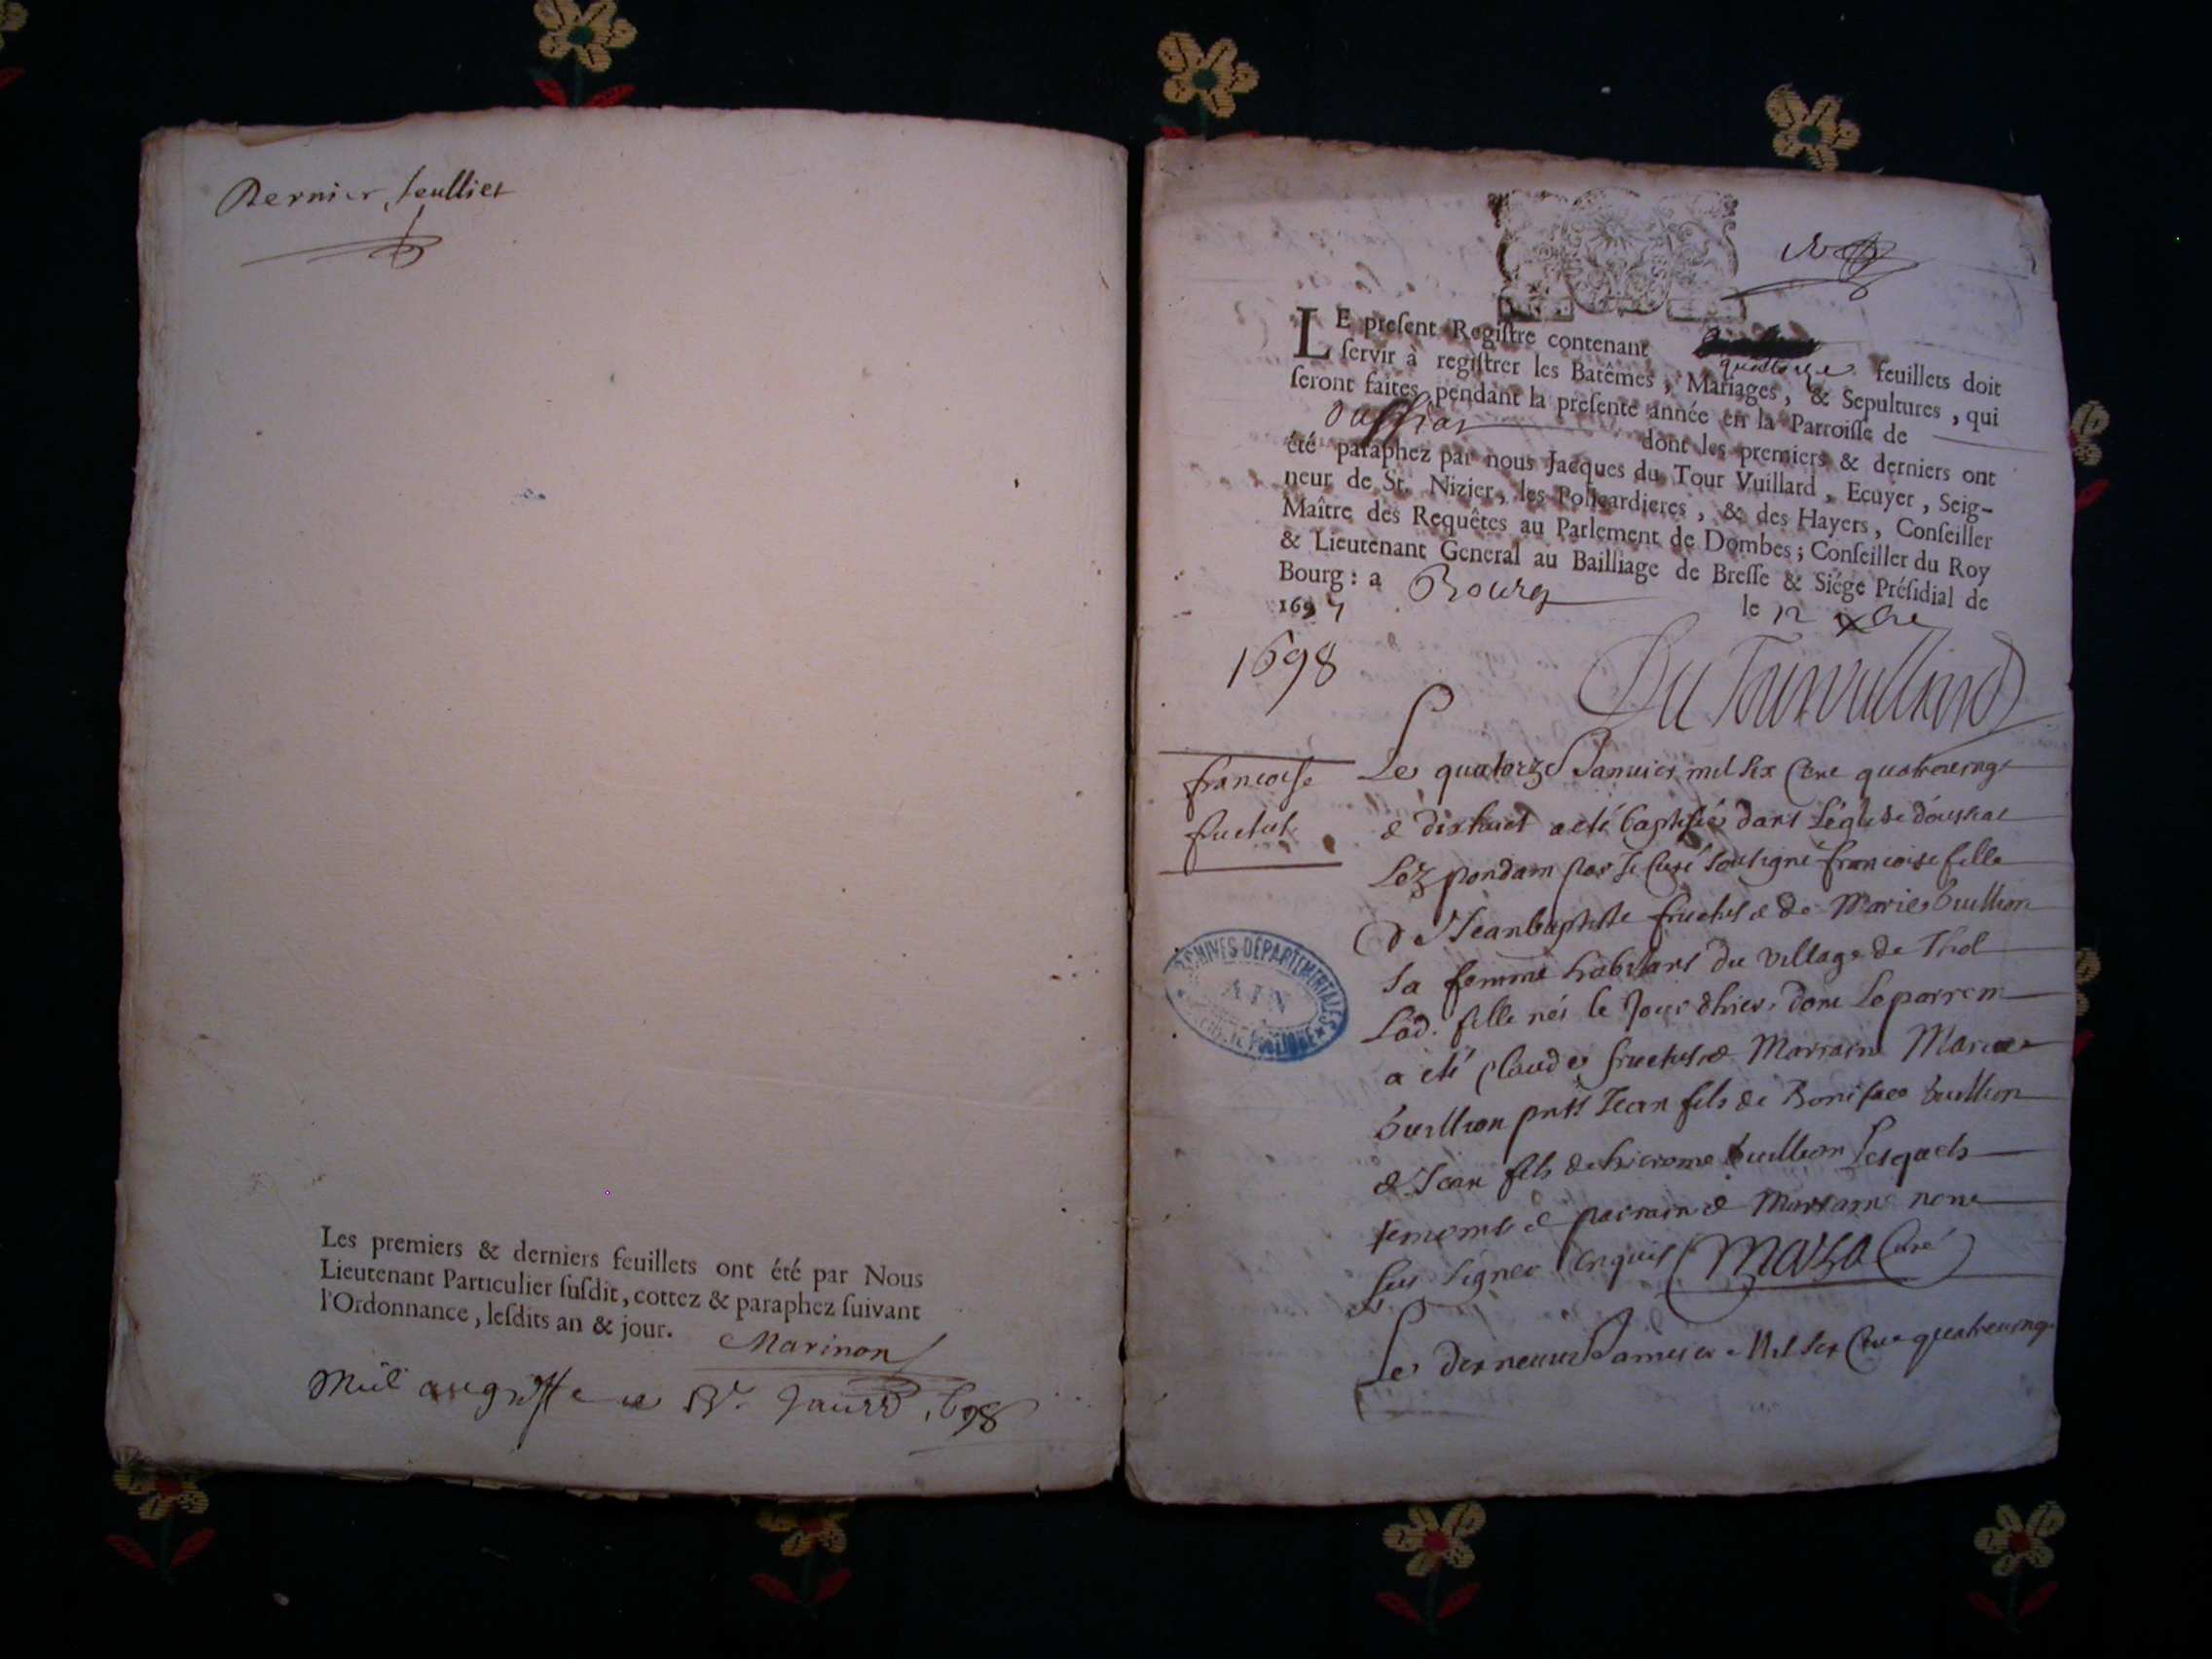 Dernier feulliet
Les premiers & derniers feuillets ont été par Nous
Lieutenant Particulier ſuſdit, cottez & paraphez ſuivant
l'Ordonnance, leſdits an & jour.
Marinon
1698
LE preſent Regiſtre contenant quatorze feuillets doit
ſervir à regiſtrer les Batêmes, Mariages, & Sepultures, qui
ſeront faites pendant la preſente année en la Parroiſſe de
oussiat dont les premiers & derniers ont
été paraphez par nous Jacques du Tour Vuillard, Ecuyer, Seig-
neur de St. Nizier, les Policardieres, & des Hayers, Conſeiller
Maître des Requêtes au Parlement de Dombes; Conſeiller du Roy
& Lieutenant General au Bailliage de Breſſe & Siége Préſidial de
Bourg: a Bourg le 12 xbre
1697
Du Tourvuilliard
1698
francoise
fructus
Le quatorze Janvier mil six cent quatrevingt
& dixhuit a eté baptisée dans L'eglise d'oussiat
Lez pondain par Je Curé soussigné francoise fille
de Jeanbaptiste fructus & de Marie buillion
sa femme habitans du village de Thol
Lad. fille née le Jour d'hier, dont Le parrein
a eté Claude fructus & Marraine Marie
buillion pnts Jean fils de Boniface buillion
& Jean fils de hierome buillion Lesquels
temoins & parrain & Marraine nont
sceu signer enquis Curé
Le dixneuf Janvier Mil six Cent quatrevingt
ARCHIVES DÉPARTEMENTALES
AIN